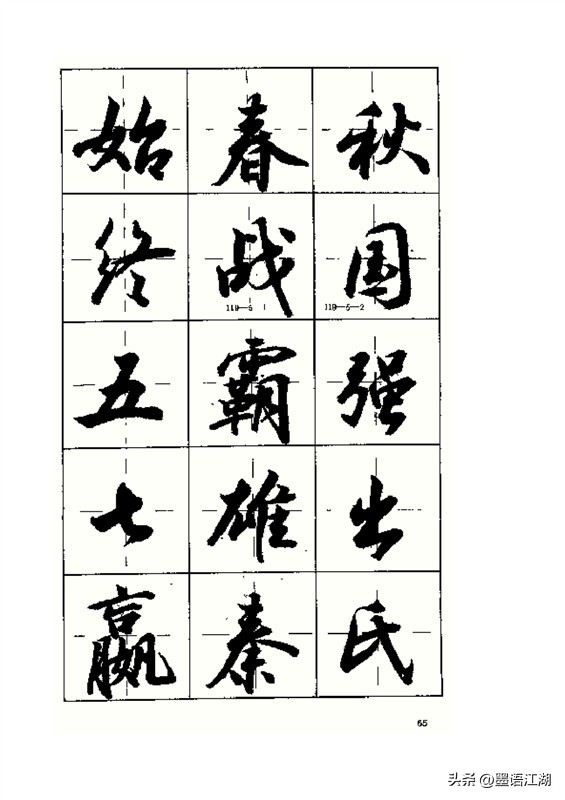 始春秋
终战国
119—5 119—5—2
五霸强
七雄出
嬴秦氏
65
头条 @墨语江湖